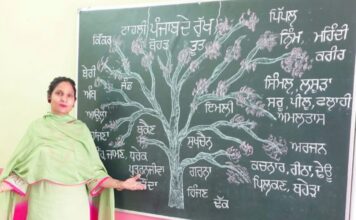 ਟਾਹਲੀ ਪੰਜਾਬ ਦੇ ਰੁੱਖ
ਪਿੱਪਲ
ਕਿੱਕਰ
ਬੋਹੜ
ਤੂਤ
ਨਿੰਮ, ਮਹਿੰਦੀ
ਕਰੀਰ
ਬੇਰੀ
ਜੰਡ
ਅੰਬ
ਸਿੰਮਲ, ਲਸੂੜਾ
ਇਮਲੀ
ਸਰੂ, ਪੀਲੂ, ਫਲਾਹੀ
ਅਮਲਤਾਸ
ਆਉਲਾ
ਬੁਕੈਣ
ਸੁਖਚੈਨ
ਅਰਜਨ
ਜਾਮਣ, ਧਰੇਕ
ਢੱਕ
ਕਚਨਾਰ, ਰੀਠਾ, ਦੇਊ
ਪਿਲਕਣ, ਬਹੇੜਾ